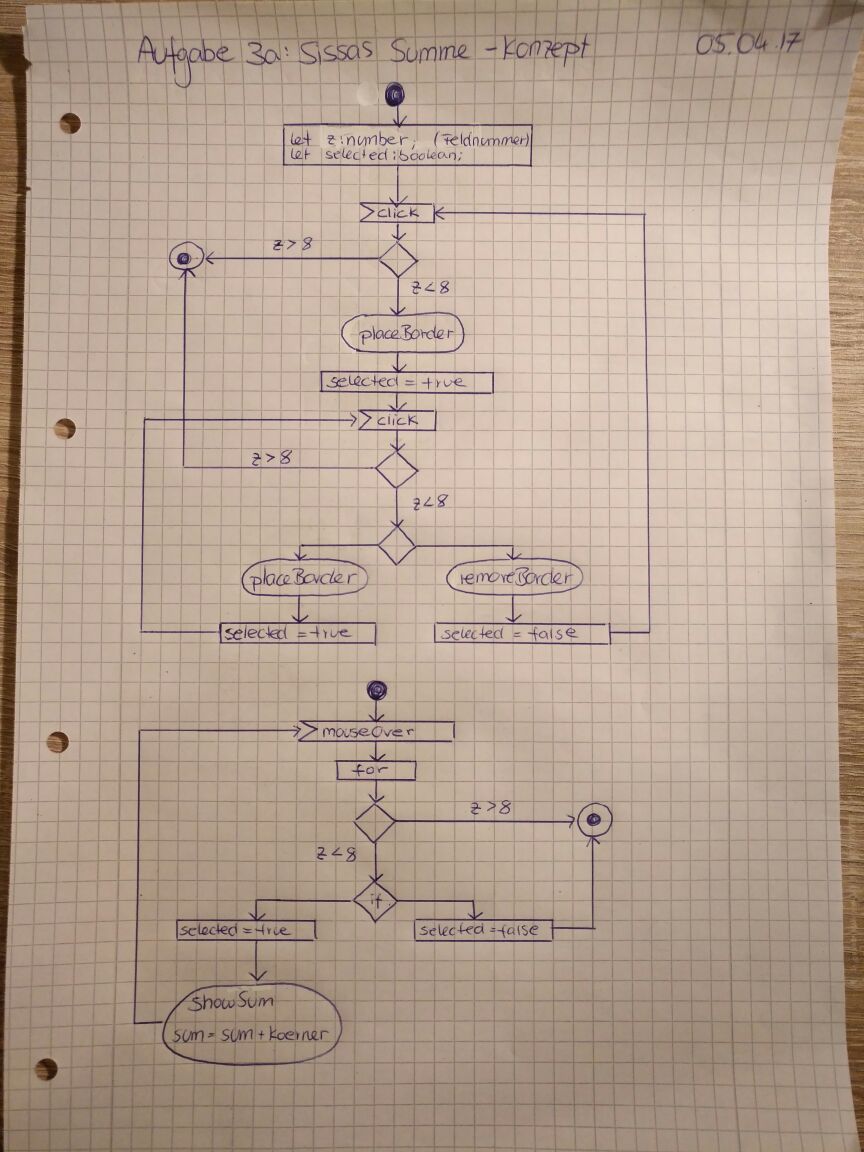 Aufgabe 3a: Sissas Summe - Konzept 05.04.17
let z:number; (Feldnummer)
let selected:boolean;
click
z>8
z<8
placeBorder
selected = true
click
z>8
z<8
placeBorder removeBorder
selected = true selected = false
mouseOver
for
z>8
z<8
if
selected = true selected = false
showSum
sum = sum + koerner